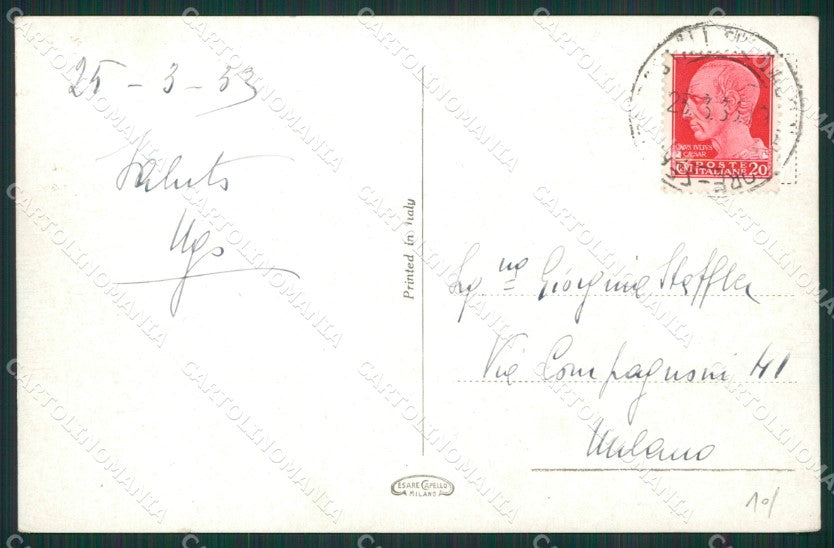 25 - 3 - 33
Saluti
Ugo
Printed in Italy
CESARE CAPELLO
MILANO
DIVVS IVLIVS
CAESAR
POSTE
ITALIANE 20
25.3.33
Sigᵃⁿᵃ Giorgina Steffler
Via Compagnoni 41
Milano
10/
CARTOLINOMANIA